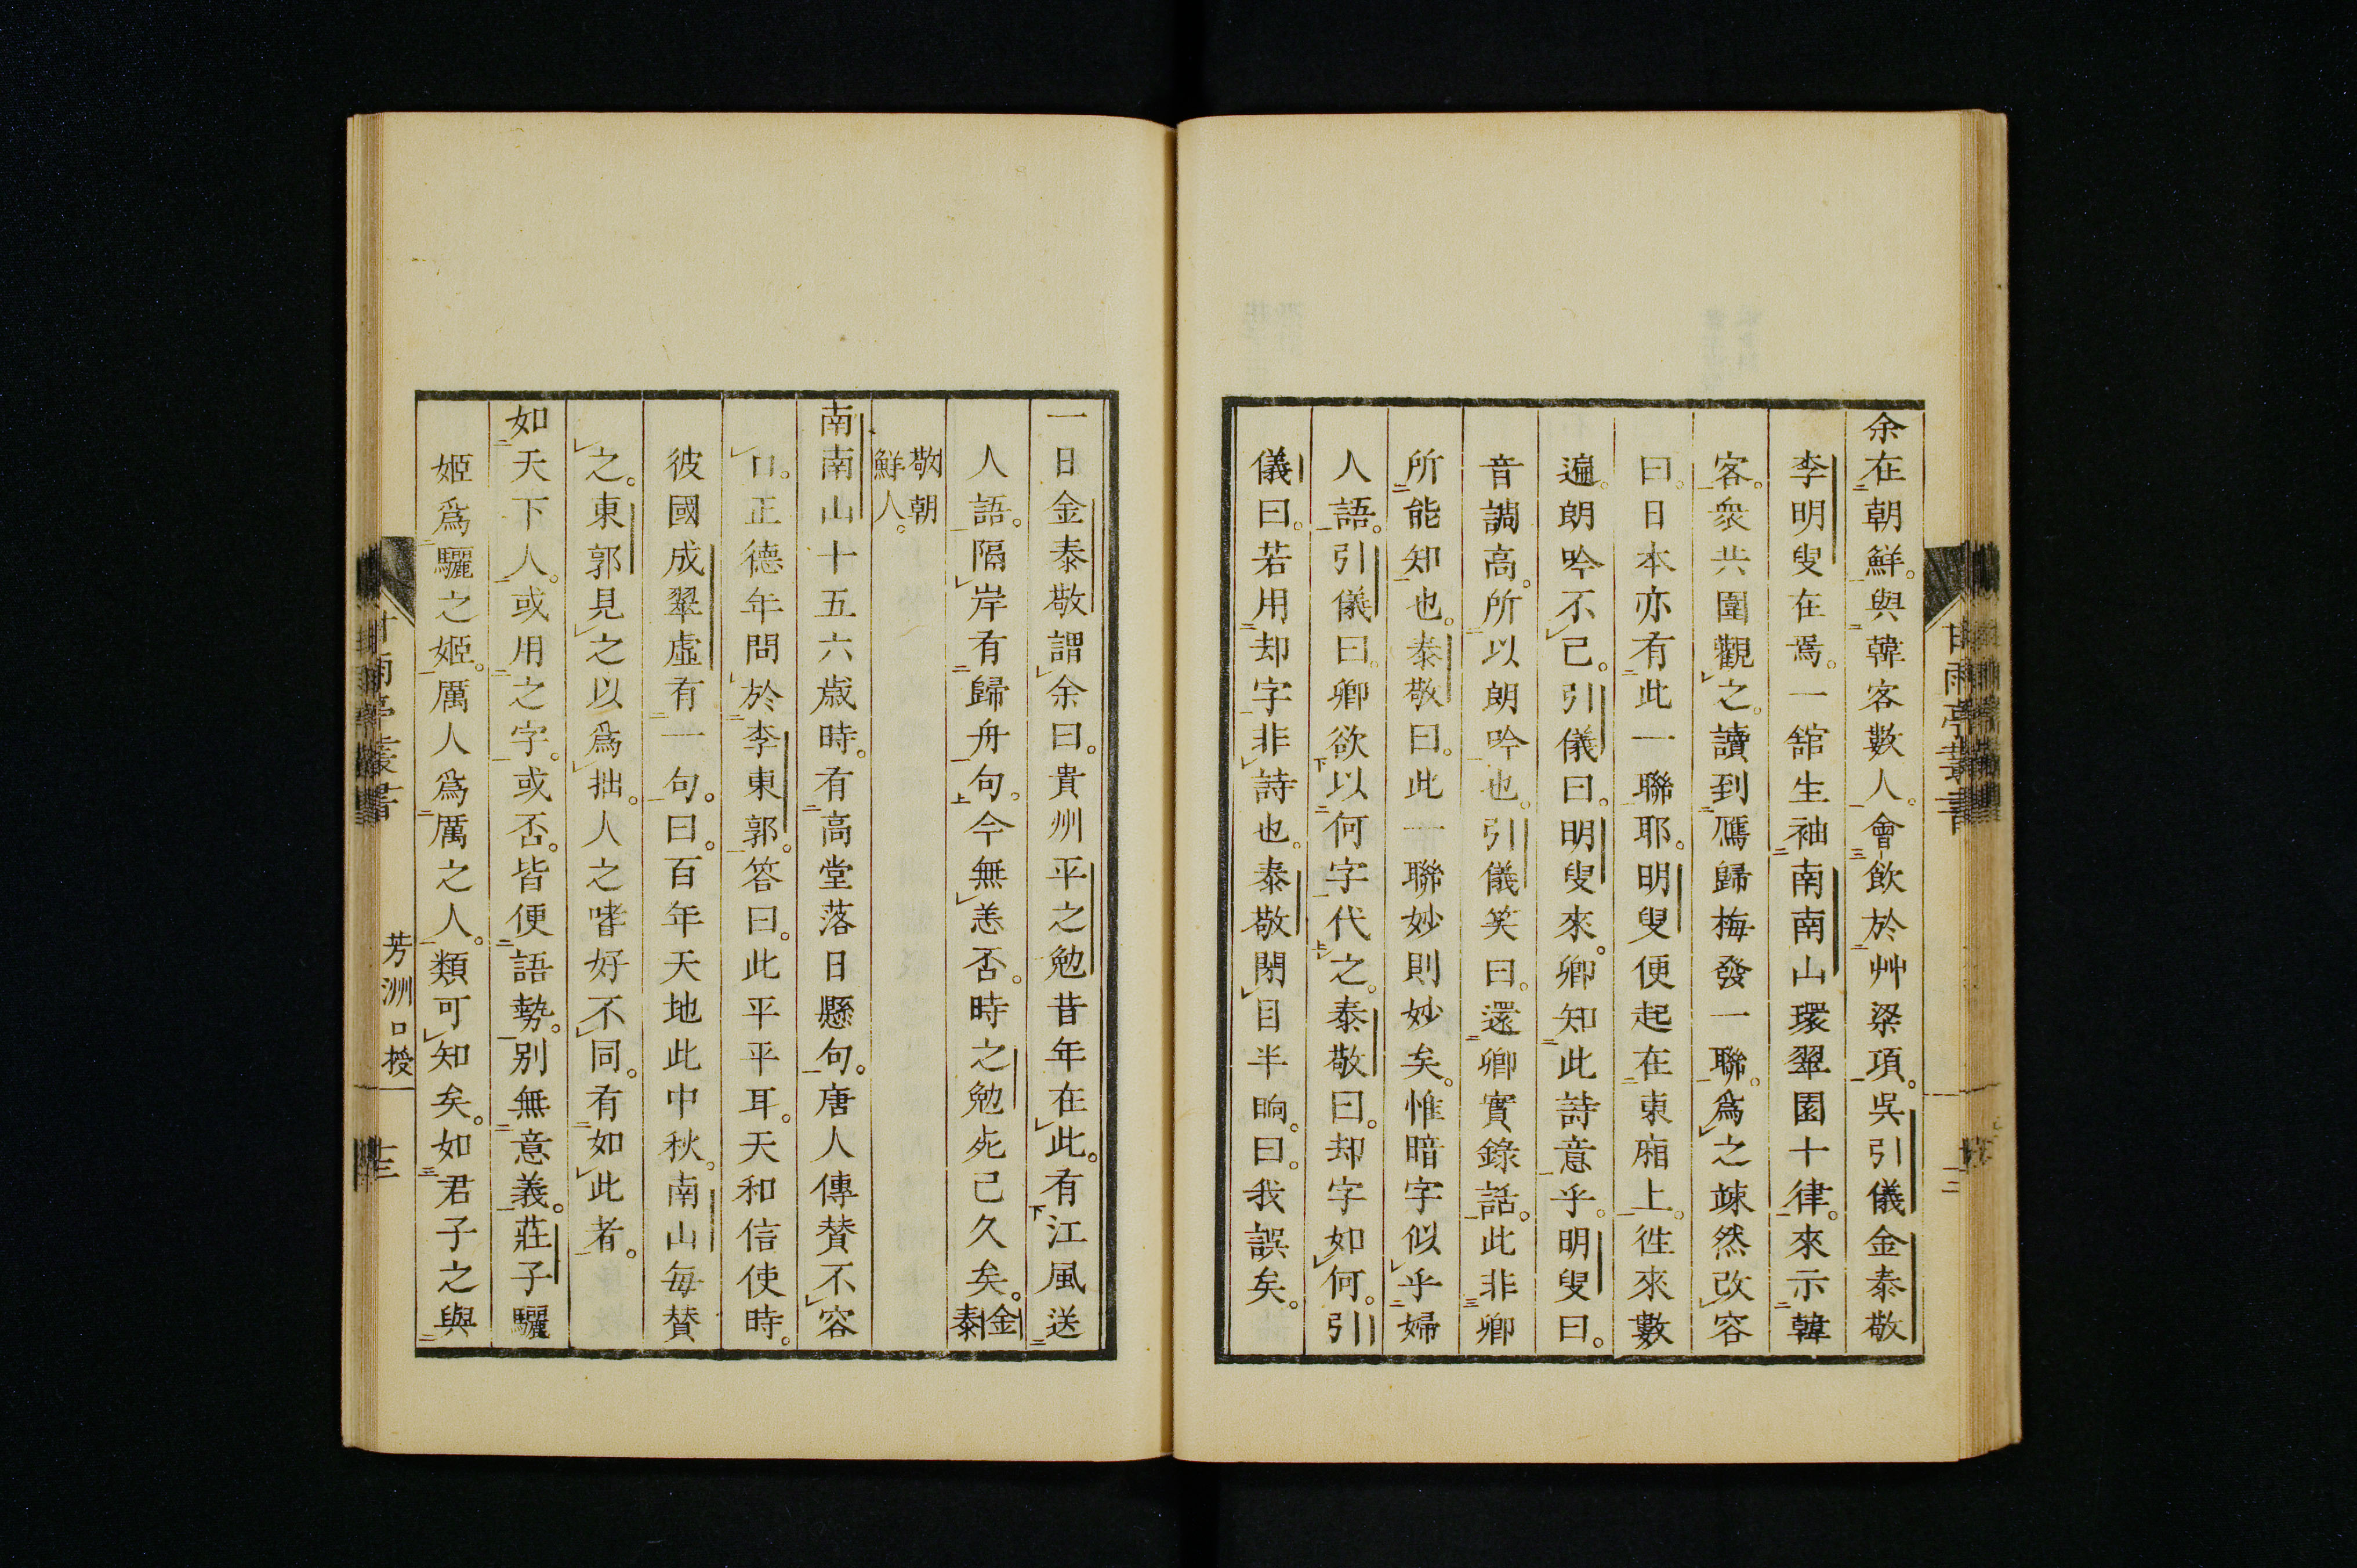 余在朝鮮。與韓客數人。會飲於艸梁項。吳引儀金泰敬
李明叟在焉。一舘生袖南南山環翠園十律。來示韓
客。衆共圍觀之。讀到鴈歸梅發一聯。爲之竦然改容
曰。日本亦有此一聯耶。明叟便起在東廂上。徃來數
遍。朗吟不已。引儀曰。明叟來。卿知此詩意乎。明叟曰。
音調高。所以朗吟也。引儀笑曰。還卿實錄話。此非卿
所能知也。泰敬曰。此一聯妙則妙矣。惟暗字似乎婦
人語。引儀曰。卿欲以何字代之。泰敬曰。却字如何。引
儀曰。若用却字非詩也。泰敬閉目半晌。曰。我誤矣。
甘雨亭叢書
一日金泰敬謂余曰。貴州平之勉昔年在此。有江風送
人語。隔岸有歸舟句。今無恙否。時之勉死已久矣。金泰
敬朝鮮人。
南南山十五六歲時。有高堂落日懸句。唐人傳賛不容
口。正德年問於李東郭。答曰。此平平耳。天和信使時。
彼國成翠虛有一句。曰。百年天地此中秋。南山每賛
之。東郭見之以爲拙。人之嗜好不同。有如此者。
如天下人。或用之字。或否。皆便語勢。別無意義。莊子驪
姬爲驪之姬。厲人爲厲之人。類可知矣。如君子之與
甘雨亭叢書
芳洲口授